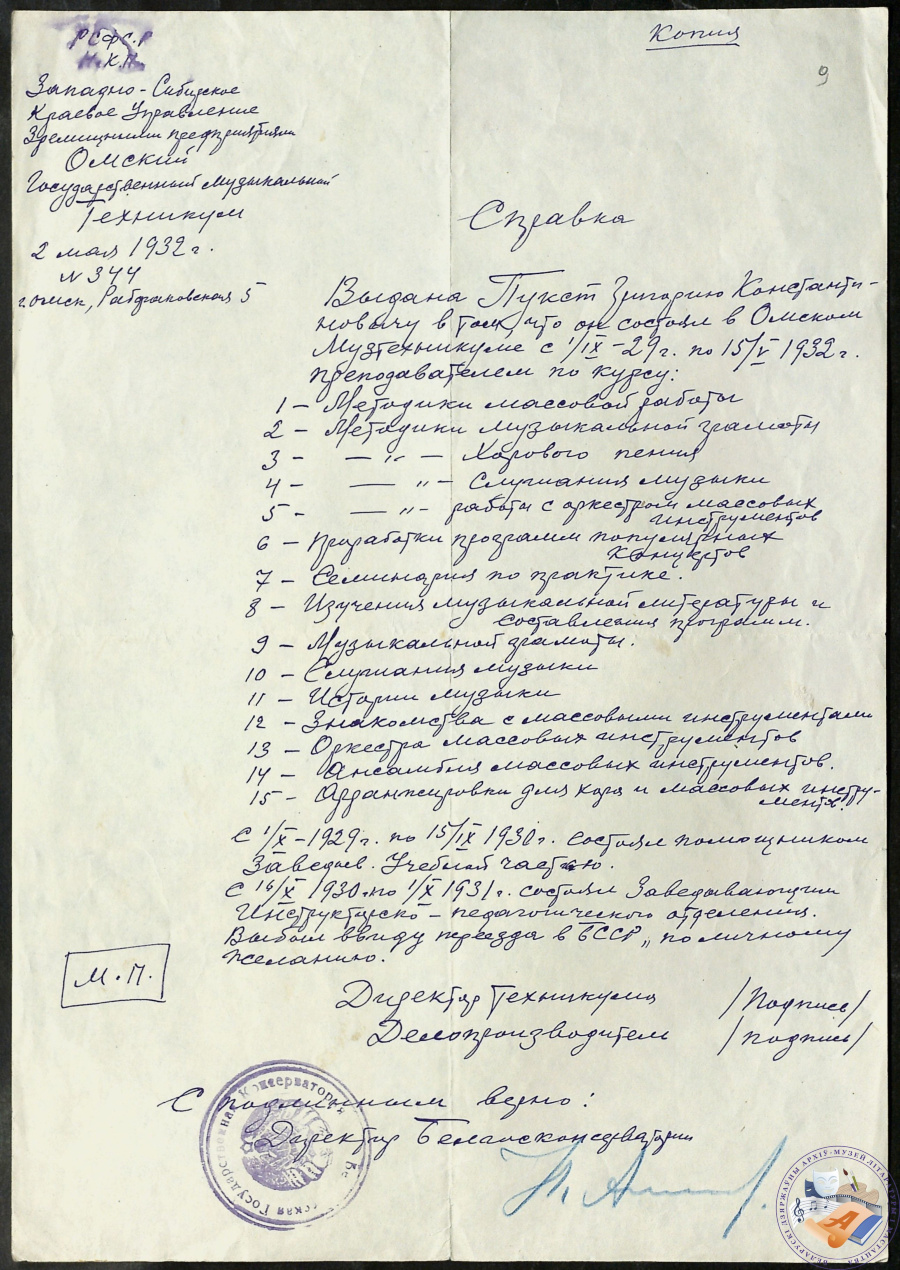 Копия
9
РСФСР
Н.К.П.
Западно-Сибирское
Краевое Управление
Зрелищными предприятиями
Омский
Государственный музыкальный
Техникум
2 мая 1932 г.
N 344
г. Омск, Рабфаковская 5
Справка
Выдана Пукст Григорию Константи-
новичу в том, что он состоял в Омском
Музтехникуме с 1/IX-29 г. по 15/V 1932 г.
преподавателем по курсу:
1 - Методики массовой работы
2 - Методики музыкальной грамоты
3 - — " — Хорового пения
4 - — " — Слушания музыки
5 - — " — работы с оркестром массовых
инструментов
6 - Проработки программ популярных
концертов
7 - Семинария по практике.
8 - Изучения музыкальной литературы и
составления программ.
9 - Музыкальной грамоты.
10 - Слушания музыки
11 - Истории музыки
12 - Знакомства с массовыми инструментами
13 - Оркестра массовых инструментов
14 - Ансамбля массовых инструментов.
15 - Арранжировки для хора и массовых инстру-
мент.
С 1/X-1929 г. по 15/IX 1930 г. состоял помощником
Заведыв. Учебной частью.
С 16/X 1930 по 1/X 1931 г. состоял Заведывающим
Инструкторско-педагогического отделения.
Выбыл ввиду переезда в БССР „по личному
желанию.
М.П.
Директор Техникума /Подпись/
Делопроизводитель /подпись/
С подлинным верно:
Директор Белгосконсерватории
Государственная Консерватория
БЕЛАРУСКІ ДЗЯРЖАЎНЫ АРХІЎ-МУЗЕЙ ЛІТАРАТУРЫ І МАСТАЦТВА